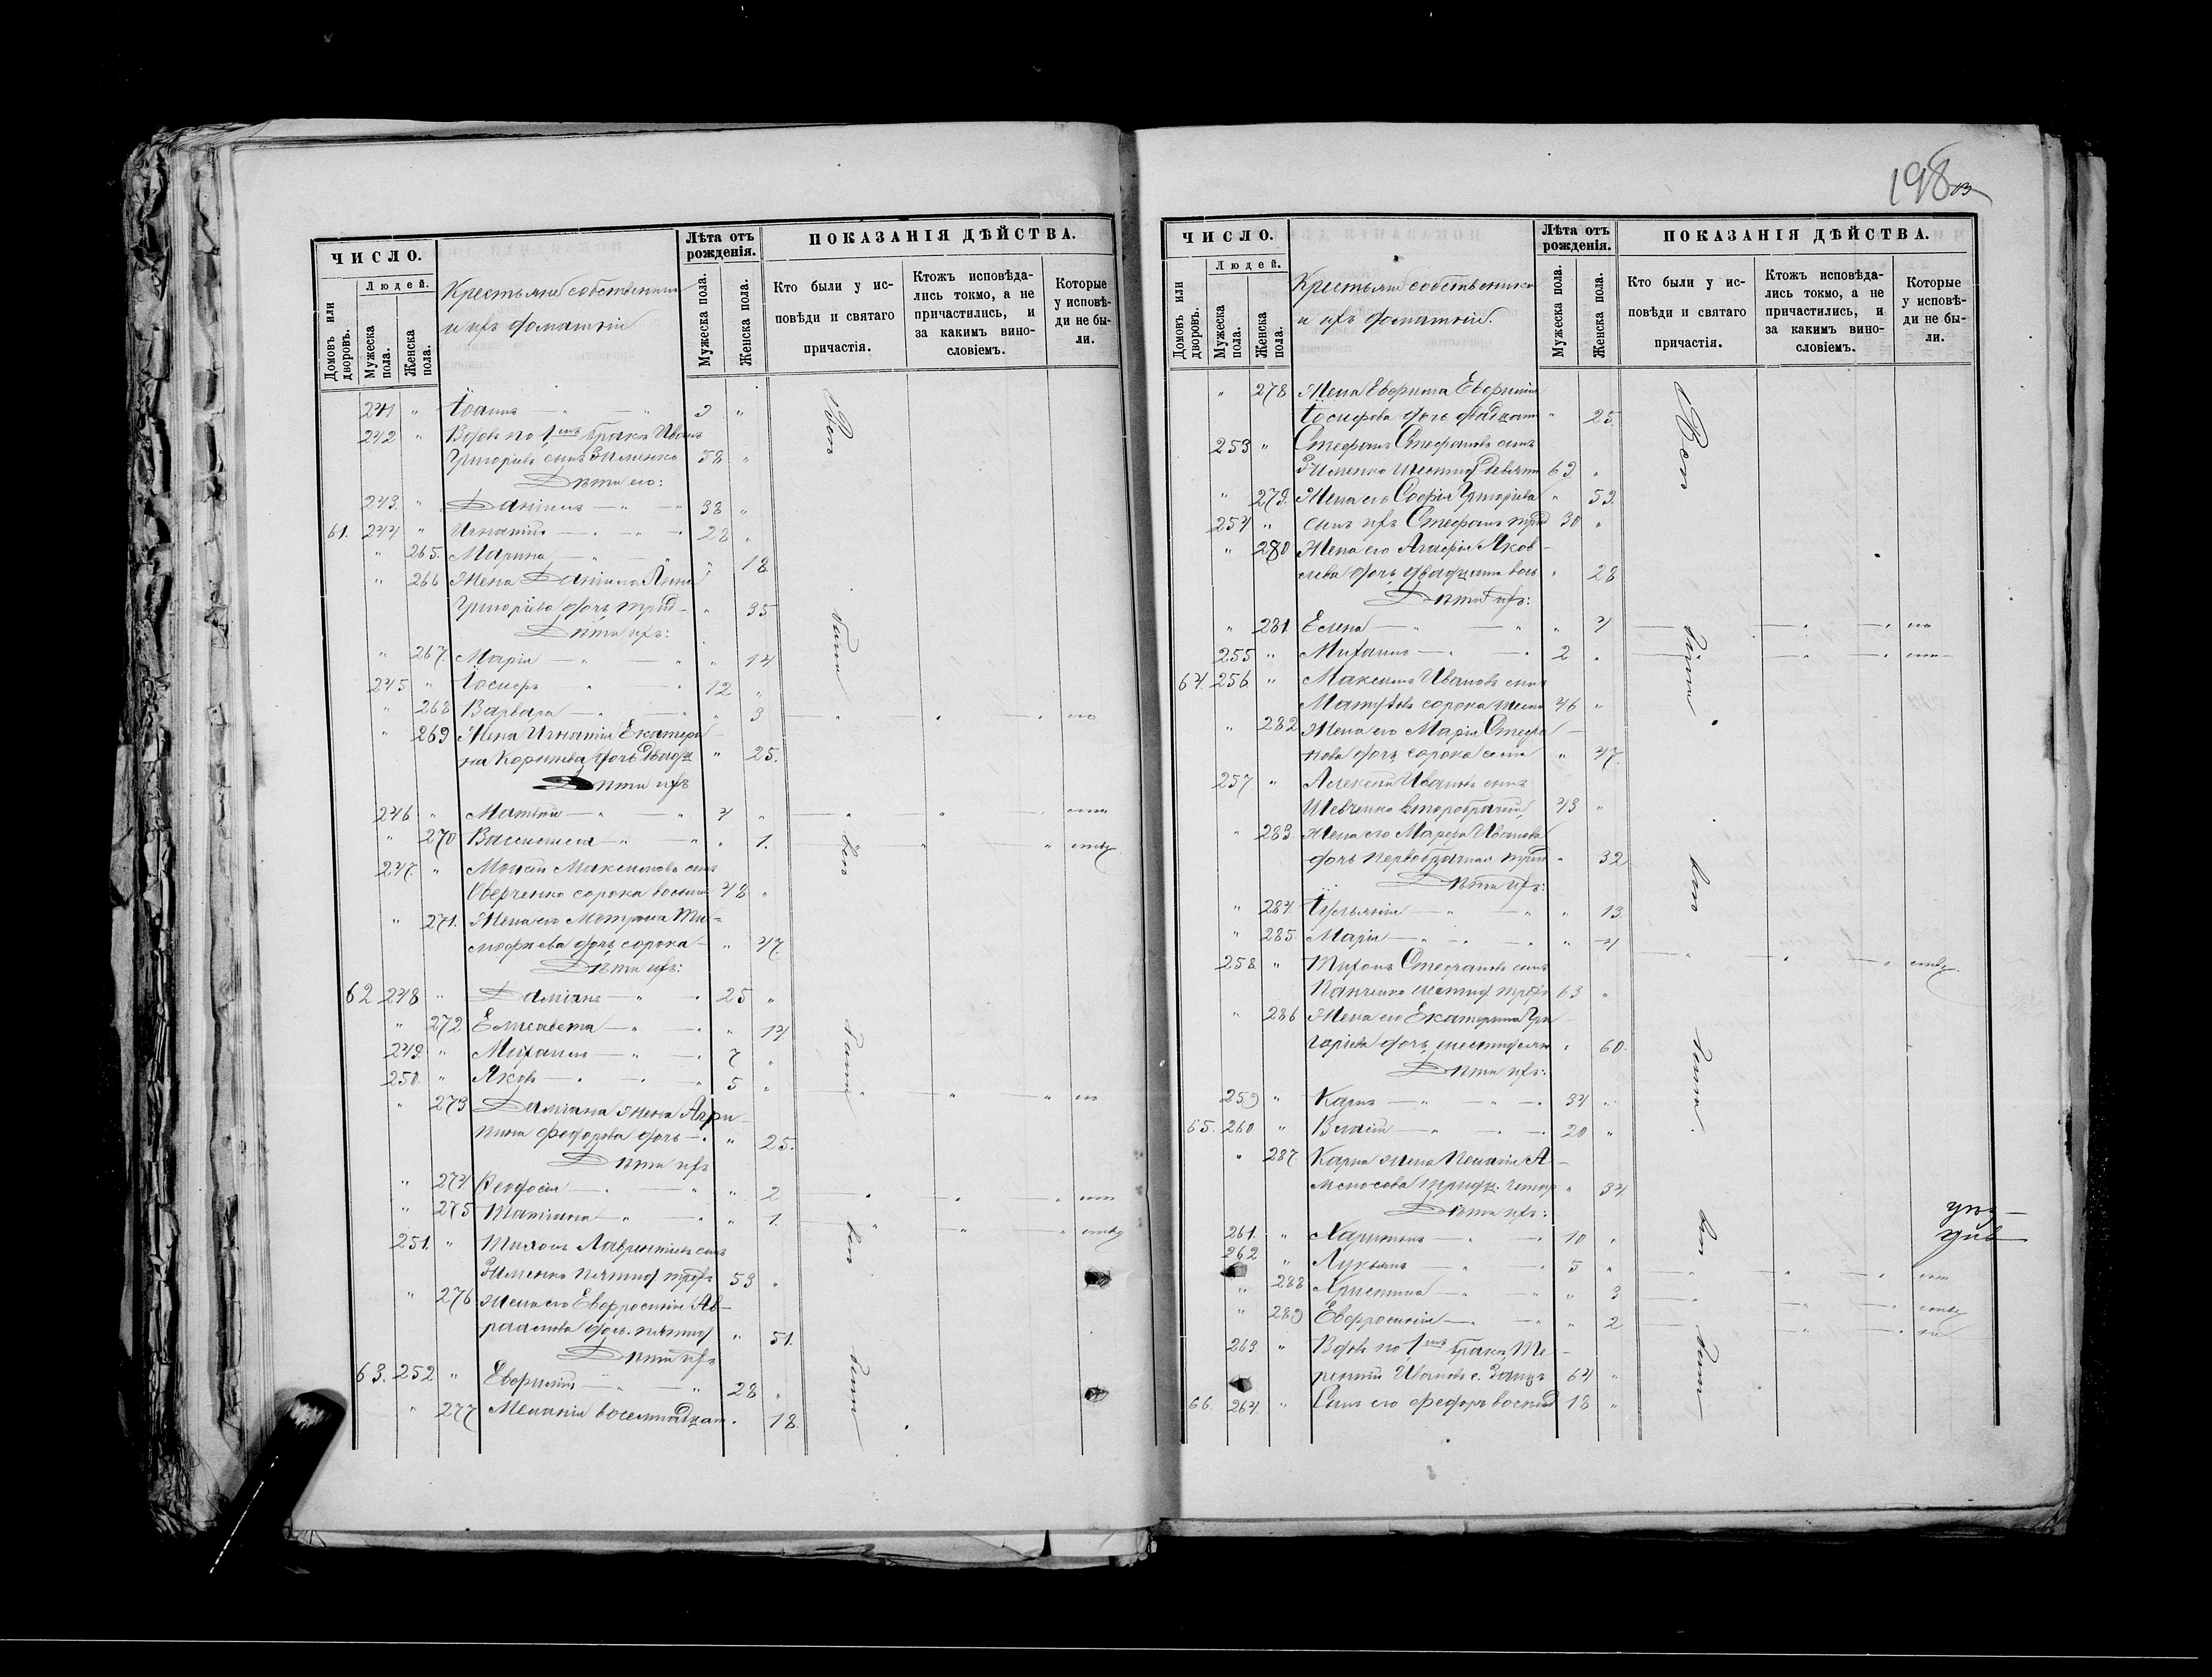 ЧИСЛО.
Людей.
Домовъ или дворовъ.
Мужеска пола.
Женска пола.
Крестьяне собственники
и ихъ домашніи
Лѣта отъ рожденія.
Мужеска пола.
Женска пола.
ПОКАЗАНІЯ ДѢЙСТВА.
Кто были у ис-
повѣди и святаго
причастія.
Ктожъ исповѣда-
лись токмо, а не
причастились, и
за какимъ вино-
словіемъ.
Которые
у исповѣ-
ди не бы-
ли.
241 " Іоаннъ — " — "
242 " Вдовъ по 1мъ бракѣ Иванъ
Григоріевъ сынъ Зименко 58 "
Дѣти его:
243. " Даніилъ — " — " 38 "
61. 244 " Игнатій — " — " 28 "
" 265. Марина — " — " " 18
" 266 Жена Даніила Анна
Григоріева дочь, трид- " 35
Дѣти ихъ:
" 267. Марія — " — " " 14
245 " Іосифъ " — " 12 "
" 268 Варвара — " — " " 3 — " " — "
" 269 Жена Игнатія Екатери-
на Корніева дочь двадц " 25.
Дѣти ихъ
246 " Матвѣй — " — " 4 " — " " — "
" 270 Василиса — " — " " 1. " "
247. " Моисей Максимовъ сынъ
Сверченко сорока восьми 48 "
" 271. Жена его Матрона Ти-
мофѣева дочь, сорока — " 47.
Дѣти ихъ:
62 248 " Даміанъ — " — " 25 "
" 272 Елисавета — " — " " 14
249. " Михаилъ — " — " 7 "
250. " Яковъ — " — " 5 "
" 273 Даміана жена Агри-
пина Федорова дочь — " " 25.
Дѣти ихъ
" 274 Феодосія — " — " " 2
" 275 Татіана — " — " " 1.
251. " Тихонъ Лаврентіевъ сынъ
Зименко пятид трехъ 53 "
" 276 Жена его Евфросинія Ав-
раамова дочь. пятид " 51.
Дѣти ихъ
63. 252 " Евфимій — " — " 28 "
" 277 Меланія восемнадцати " 18.
198
ЧИСЛО.
Людей.
Домовъ или дворовъ.
Мужеска пола.
Женска пола.
Крестьяне собственники
и ихъ домашніи.
Лѣта отъ рожденія.
Мужеска пола.
Женска пола.
ПОКАЗАНІЯ ДѢЙСТВА.
Кто были у ис-
повѣди и святаго
причастія.
Ктожъ исповѣда-
лись токмо, а не
причастились, и
за какимъ вино-
словіемъ.
Которые
у исповѣ-
ди не бы-
ли.
" 278 Жена Евфима Евфимія
Іосифова дочь двадцати " 25.
253 " Стефанъ Стефановъ сынъ
Зименко шестид девяти 69. "
" 279. Жена его Софія Григоріева " 59.
254 " сынъ ихъ Стефанъ трид 30 "
" 280 Жена его Агафія Яков-
лева дочь, двадцати вось " 28
Дѣти ихъ:
" 281. Елена — " — " " 4
255 " Михаилъ — " — " 2 "
64. 256. " Максимъ Ивановъ сынъ
Матвѣевъ сорока шести 46 "
" 282 Жена его Марія Стефа-
нова дочь, сорока семи " 47.
257 " Алексѣй Ивановъ сынъ
Шевченко второбрачный 43 "
" 283. Жена его Марѳа Иванова
дочь первобрачная трид " 32
Дѣти ихъ:
" 284. Іуліанія — " — " " 13.
" 285. Марія — " — " " 4
258. " Тихонъ Стефановъ сынъ
Панченко шестид трехъ 63 "
" 286 Жена его Екатерина Гри-
горіева дочь, шестидесяти " 60.
Дѣти ихъ:
259 " Карпъ — " — " 34 "
65. 260 " Власій — " — " 20 "
" 287. Карпа жена Пелагія А-
мосова тридц. четыр " 34.
Дѣти ихъ:
261. " Харитонъ — " — " 10 "
262 " Лукьянъ — " — " 5 "
" 288 Христина — " — " " 3
" 289 Евфросинія — " — " " 2
263. " Вдовъ по 1мъ бракѣ, Те-
рентій Ивановъ с. Заяцъ 64 "
66. 264. " Сынъ его Федоръ восьмнад 18 "